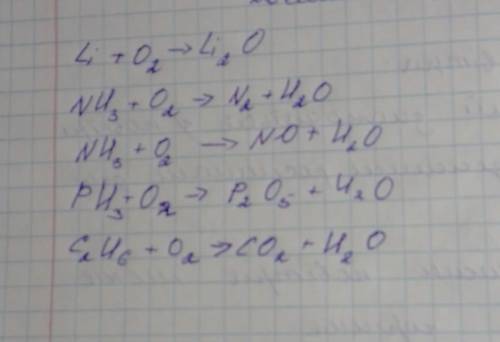 Li + O₂ → Li₂O
NH₃ + O₂ → N₂ + H₂O
NH₃ + O₂ → NO + H₂O
PH₃ + O₂ → P₂O₅ + H₂O
C₂H₆ + O₂ → CO₂ + H₂O